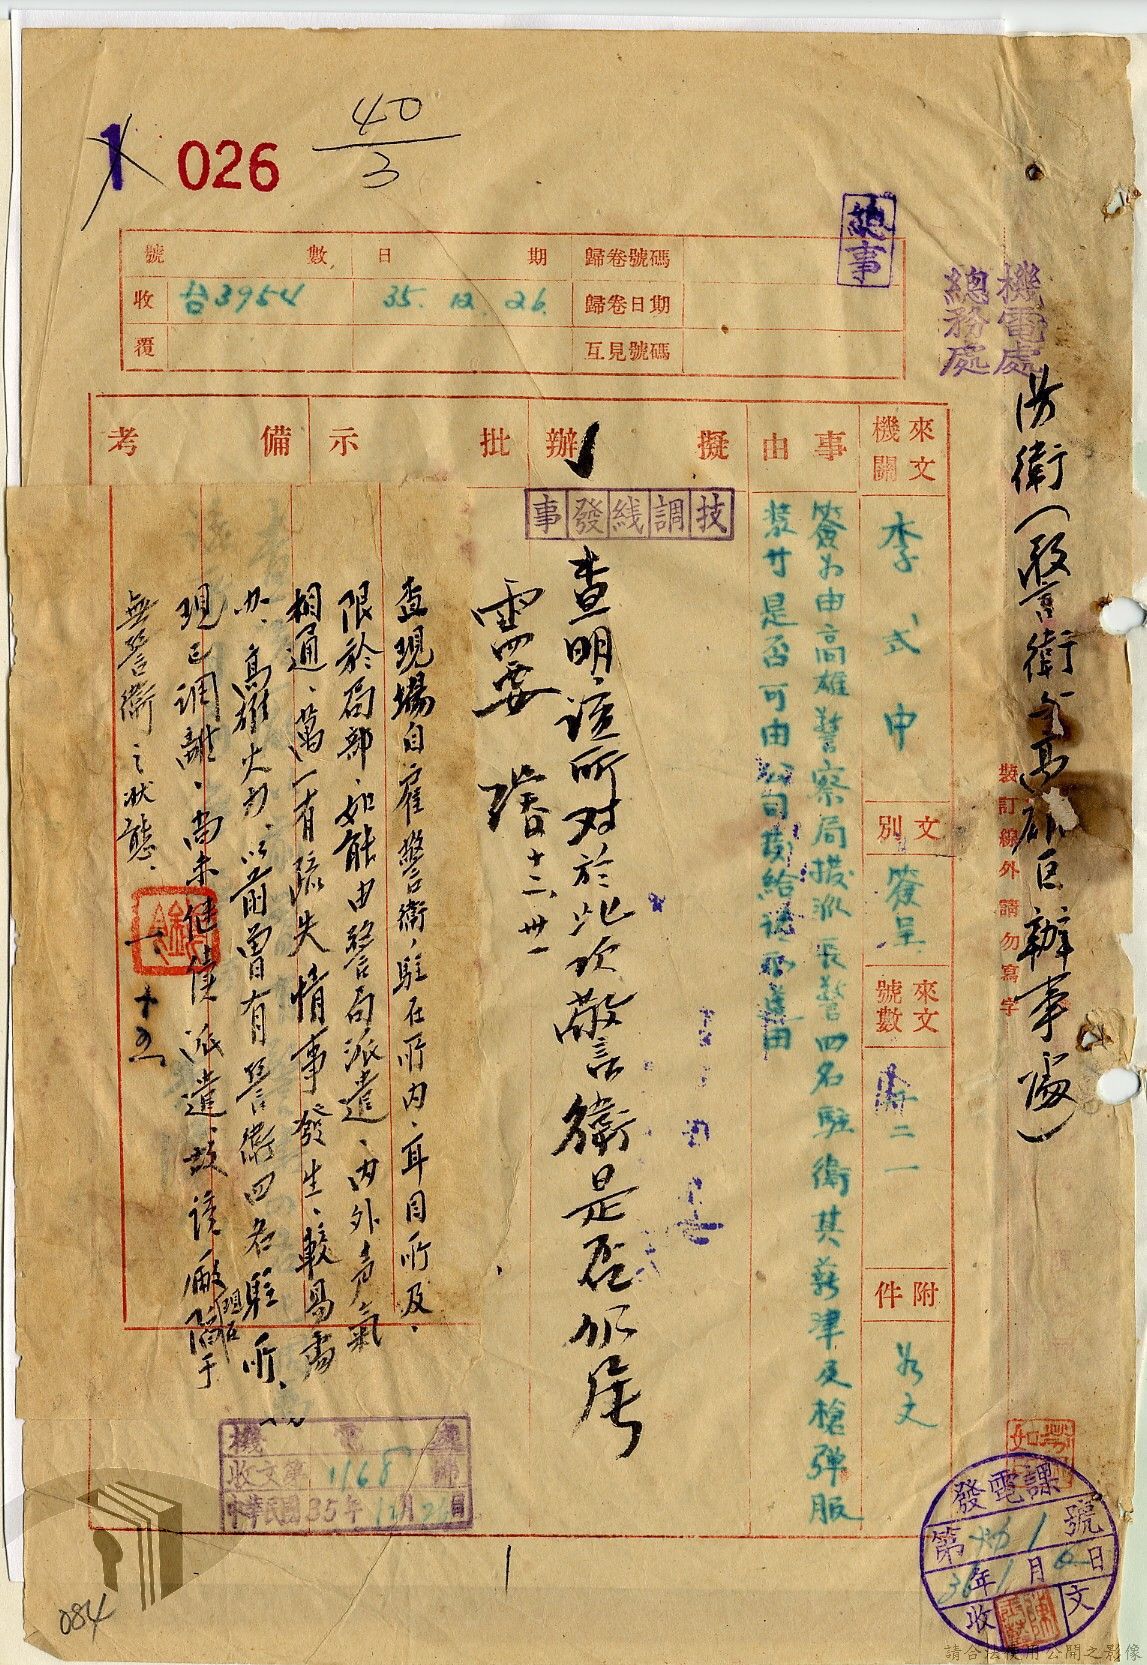 1 026
40
3
總事
號數 日期 歸卷號碼
收 台3954 35.12.26. 歸卷日期
覆 互見號碼
機電處
總務處
防衛(警衛 高雄區辦事處)
裝訂線外請勿寫字
來文機關 李式中
文別 簽呈
來文號數 二一
附件 如文
事由
簽為由高雄警察局撥派長警四名駐衛其薪津及槍彈服
裝廿是否可由公司撥給請示遵由
擬辦
技調綫發事
查明該所对於此項警衛是否仍屬
需要 十二、卅一
批示
備考
查現場自雇警衛,駐在所內,耳目所及,
限於局部,如能由警局派遣,內外声氣
相通,萬一有疏失情事發生,較易處
办,高雄火力,以前曾有警衛四名駐所,
現已調離,尚未繼續派遣,故該廠現在陷于
無警衛之狀態,
一、十五
機電處
收文第1168號
中華民國35年12月26日
發電課
第 號
36年1月6日
收文
084
請合法使用公開之影像